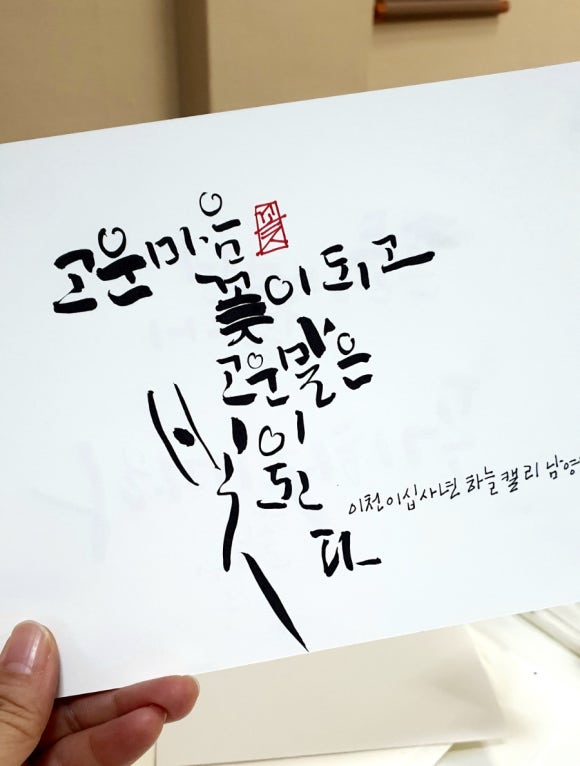 고운마음
꽃이되고
고운말은
빛이
된
다
이천이십사년 하늘캘리 남영